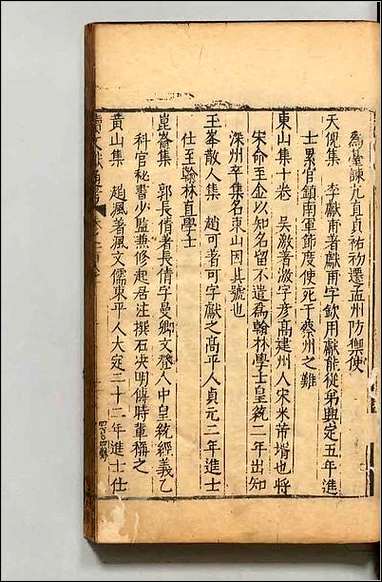 為臺諫尤直貞祐初遷孟州防禦使
天倪集　李獻甫著獻甫字欽用獻能從弟興定五年進
士累官鎮南軍節度使死于蔡州之難
東山集十卷　吳激著激字彦高建州人宋米芾壻也將
宋命至金以知名留不遣為翰林學士皇統二年出知
深州卒集名東山因其號也
玉峯散人集　趙可著可字獻之高平人貞元二年進士
仕至翰林直學士
崑崙集　郭長倩著長倩字曼卿文登人中皇統經義乙
科官秘書少監兼修起居注撰石決明傳時輩稱之
黃山集　趙渢著渢文儒東平人大定二十二年進士仕
續文獻通考